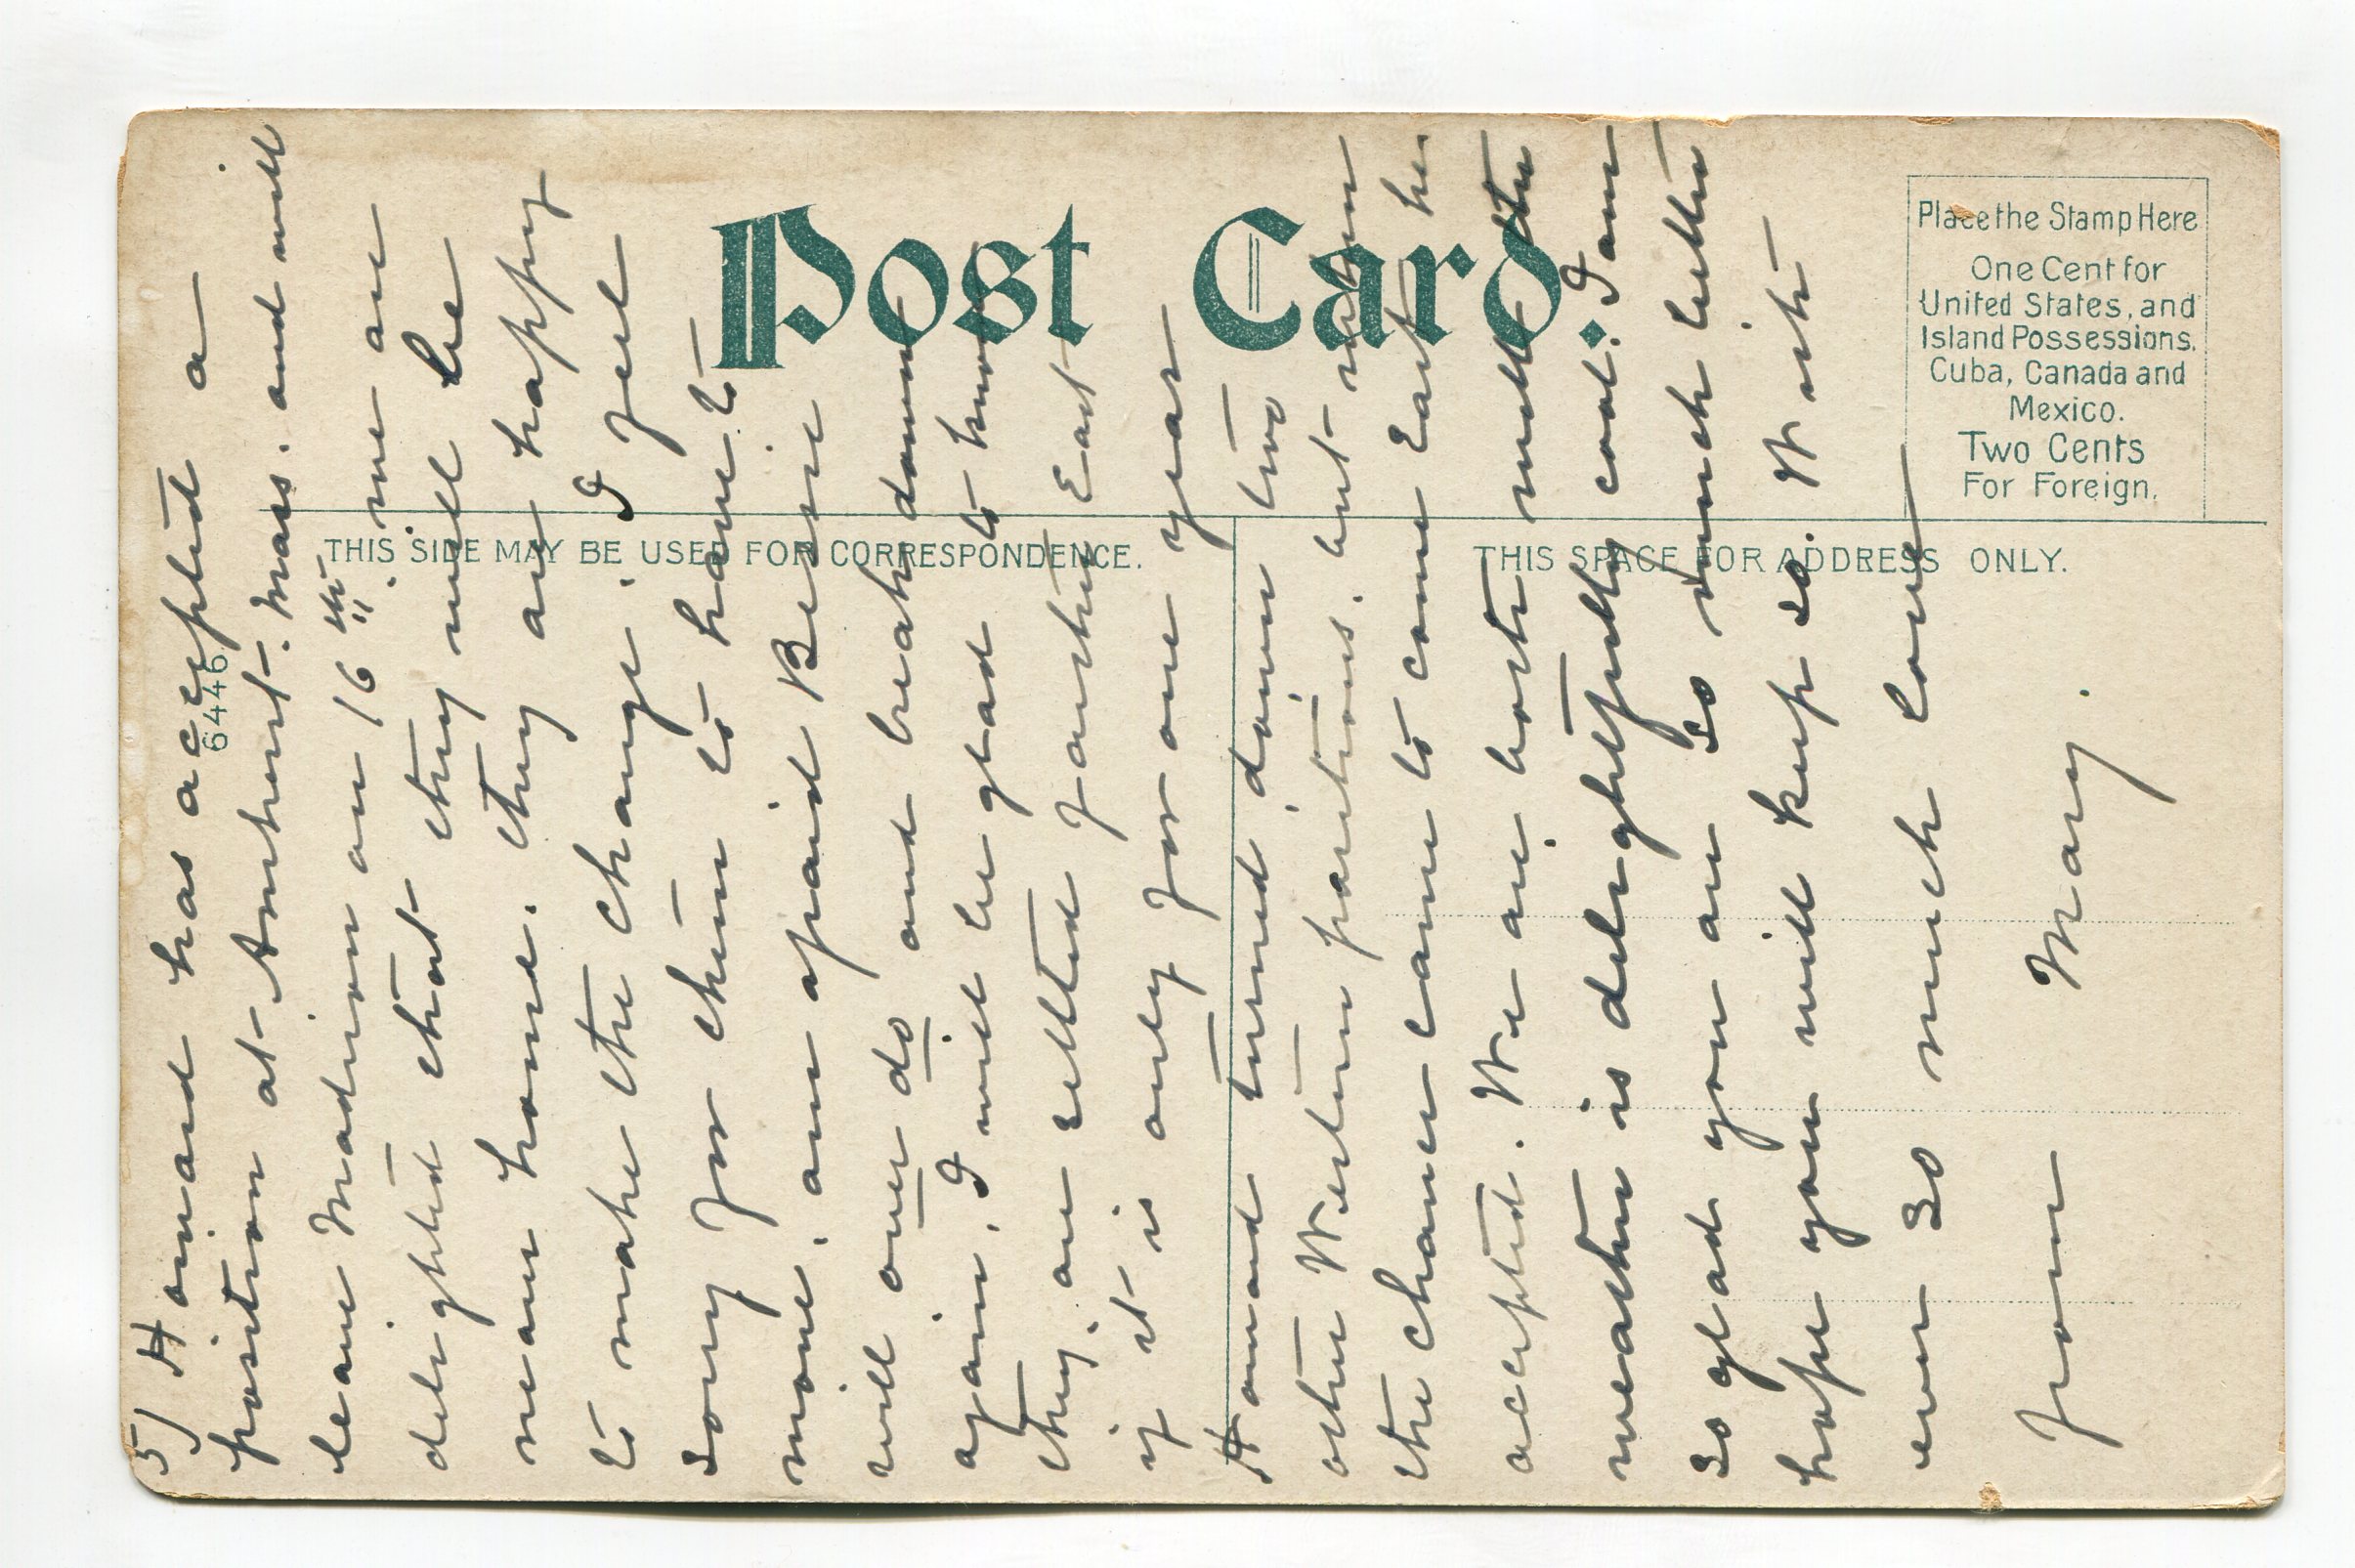 Post Card.
Place the Stamp Here
One Cent for
United States, and
Island Possessions,
Cuba, Canada and
Mexico.
Two Cents
For Foreign.
THIS SIDE MAY BE USED FOR CORRESPONDENCE.
THIS SPACE FOR ADDRESS ONLY.
6446
5) Homand has accepted a
position at Amherst. Mass. and will
leave Madison on 16th. we are
delighted that they will be
near home. they are happy
to make the change. I feel
sorry for them to have to
move. am afraid Bessie
will over do and break down
again. I will be glad to know
they are settled farther East
if it is only for one year
Homand turned down two
other Western positions. but when
the chance came to come East he
accepted. We are both well the
weather is delightfully cool. I am
so glad you are so much better
hope you will keep so. With
ever so much love
from Mary.